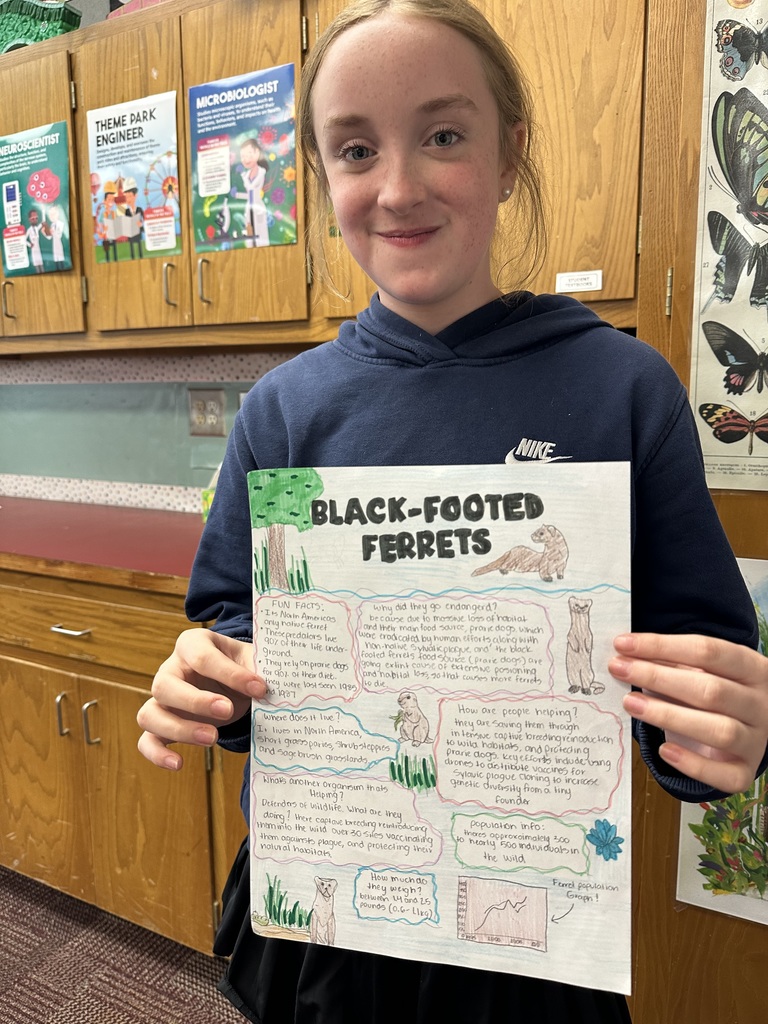 NEUROSCIENTIST
THEME PARK
ENGINEER
MICROBIOLOGIST
STUDENT
TEXTBOOKS
NIKE
BLACK-FOOTED
FERRETS
FUN FACTS:
• Its North Americas
only native ferret
• These predators live
90% of their life under-
ground.
• They rely on prairie dogs
for 90% of their diet.
they were last seen 1985
and 1987
Why did they go endangerd?
because due to massive loss of habitat
and their main food source, prairie dogs which
were eradicated by human efforts along with
non-native sylvatic plague and the black
footed ferrets food source (prairie dogs) are
going extint cause of extensive poisoning
and habitat loss so that causes more ferrets
to die
Where does it live?
It lives in North America,
short grass praries, shrub steppies
and sagebrush grasslands
How are people helping?
they are saving them through
in tensive captive breeding reinroduction
to wild habitats, and protecting
prairie dogs. Key efforts include using
drones to distribute vaccines for
sylavic plague cloning to increase
genetic diversity from a tiny
founder
Whats another organism thats
Helping?
Defenders of wildlife. What are they
doing? there captive breeding reintroducing
them into the wild over 30 sites vaccinating
them agains plague, and protecting their
natural habitats
population info:
theres approximately 300
to nearly 500 individuals in
the wild
How much do
they weigh?
between 1.4 and 2.5
pounds (0.6-1.1kg)
Ferret population
Graph!